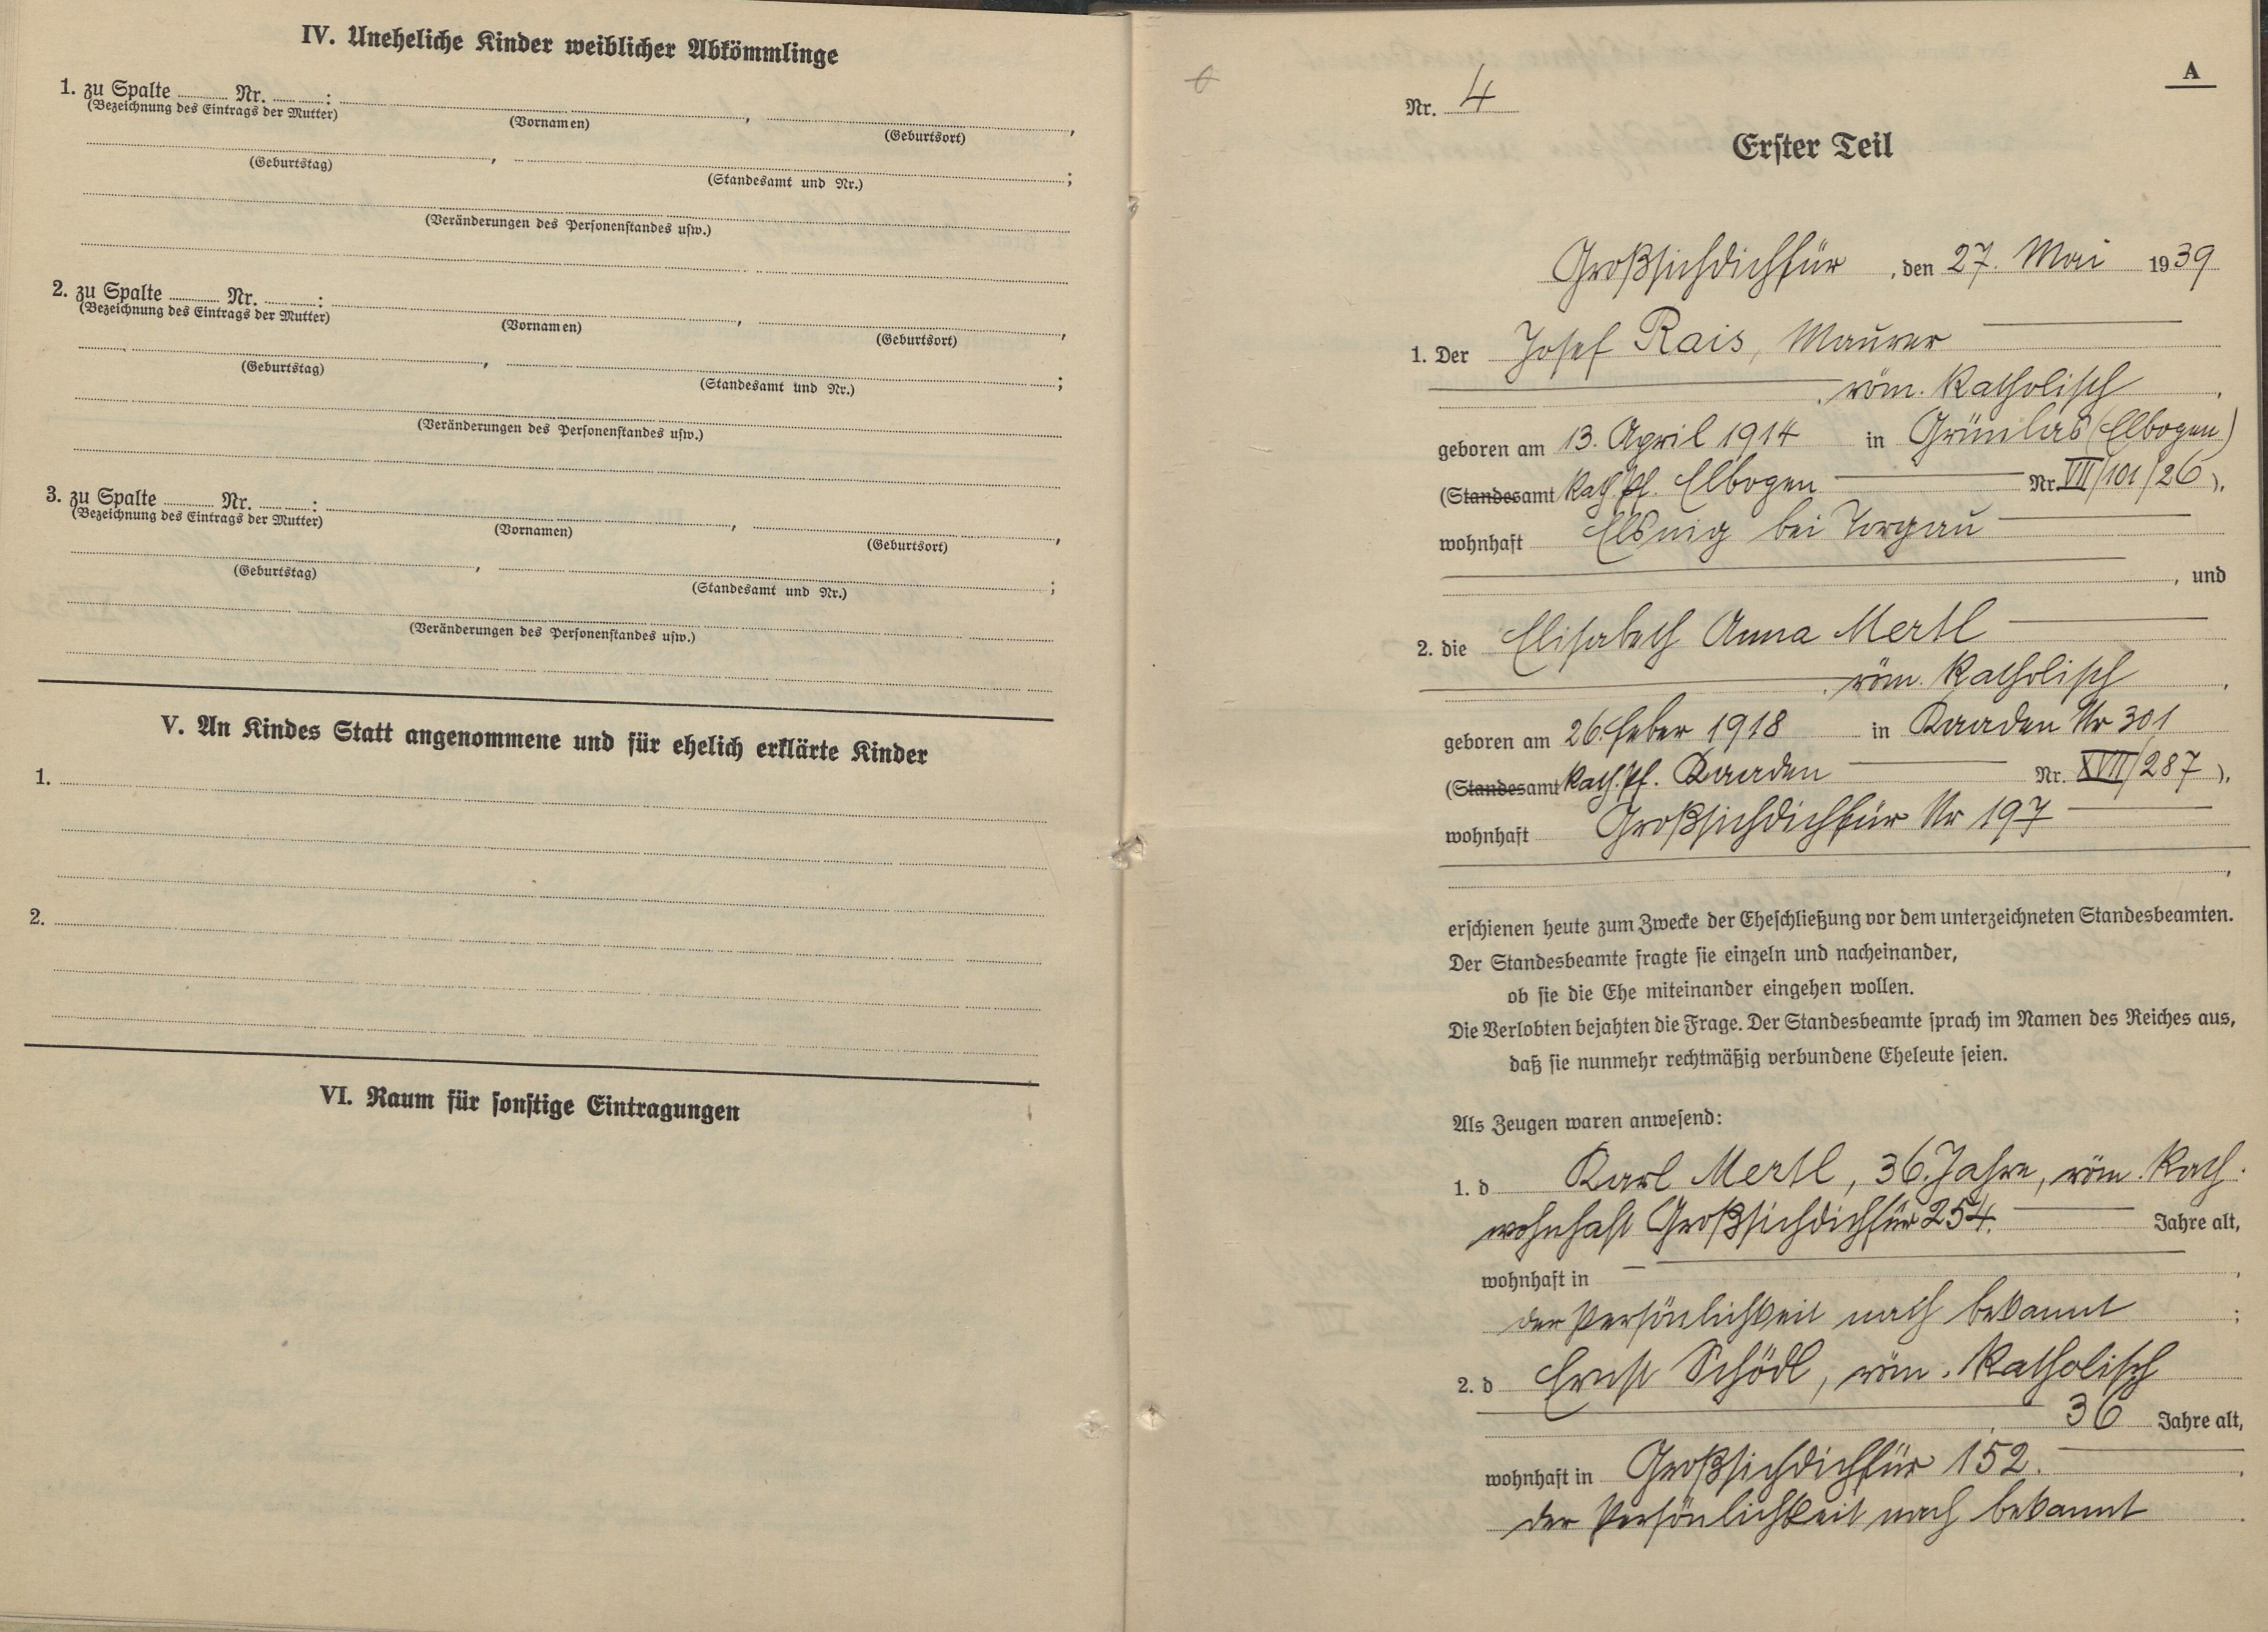 IV. Uneheliche Kinder weiblicher Abkömmlinge
1. zu Spalte ......... Nr. .........:
(Bezeichnung des Eintrags der Mutter)
(Vornamen) , (Geburtsort) ,
(Geburtstag) , (Standesamt und Nr.) ;
(Veränderungen des Personenstandes usw.)
2. zu Spalte ......... Nr. .........:
(Bezeichnung des Eintrags der Mutter)
(Vornamen) , (Geburtsort) ,
(Geburtstag) , (Standesamt und Nr.) ;
(Veränderungen des Personenstandes usw.)
3. zu Spalte ......... Nr. .........:
(Bezeichnung des Eintrags der Mutter)
(Vornamen) , (Geburtsort) ,
(Geburtstag) , (Standesamt und Nr.) ;
(Veränderungen des Personenstandes usw.)
V. An Kindes Statt angenommene und für ehelich erklärte Kinder
1.
2.
VI. Raum für sonstige Eintragungen
A
Nr. 4
Erster Teil
Großsichdichfür , den 27. Mai 1939
1. Der Josef Rais, Maurer
, röm. katholisch ,
geboren am 13. April 1914 in Grünlas (Elbogen)
(Standesamt kath. Pf. Elbogen Nr. VII/101/26),
wohnhaft Elsnig bei Torgau
, und
2. die Elisabeth Anna Mertl
, röm. katholisch ,
geboren am 26. Feber 1918 in Kaaden Nr 301
(Standesamt kath. Pf. Kaaden Nr. XVII/287),
wohnhaft Großsichdichfür Nr 197
,
erschienen heute zum Zwecke der Eheschließung vor dem unterzeichneten Standesbeamten.
Der Standesbeamte fragte sie einzeln und nacheinander,
ob sie die Ehe miteinander eingehen wollen.
Die Verlobten bejahten die Frage. Der Standesbeamte sprach im Namen des Reiches aus,
daß sie nunmehr rechtmäßig verbundene Eheleute seien.
Als Zeugen waren anwesend:
1. d Karl Mertl, 36. Jahre, röm. kath.
wohnhaft Großsichdichfür 254. Jahre alt,
wohnhaft in — ,
der Persönlichkeit nach bekannt ;
2. d Ernst Schödl, röm. katholisch
, 36 Jahre alt,
wohnhaft in Großsichdichfür 152. ,
der Persönlichkeit nach bekannt .